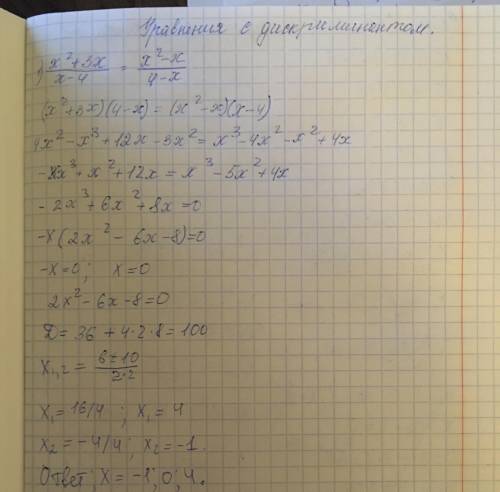 Уравнения с дискриминантом.
1) (x²+3x)/(x-4) = (x²-x)/(4-x)
(x²+3x)(4-x) = (x²-x)(x-4)
4x²-x³+12x-3x² = x³-4x²-x²+4x
-x³+x²+12x = x³-5x²+4x
-2x³+6x²+8x=0
-x(2x²-6x-8)=0
-x=0; x=0
2x²-6x-8=0
D=36+4·2·8=100
x₁,₂ = (6±10)/(2·2)
x₁=16/4; x₁=4
x₂=-4/4; x₂=-1.
Ответ; x=-1; 0; 4.